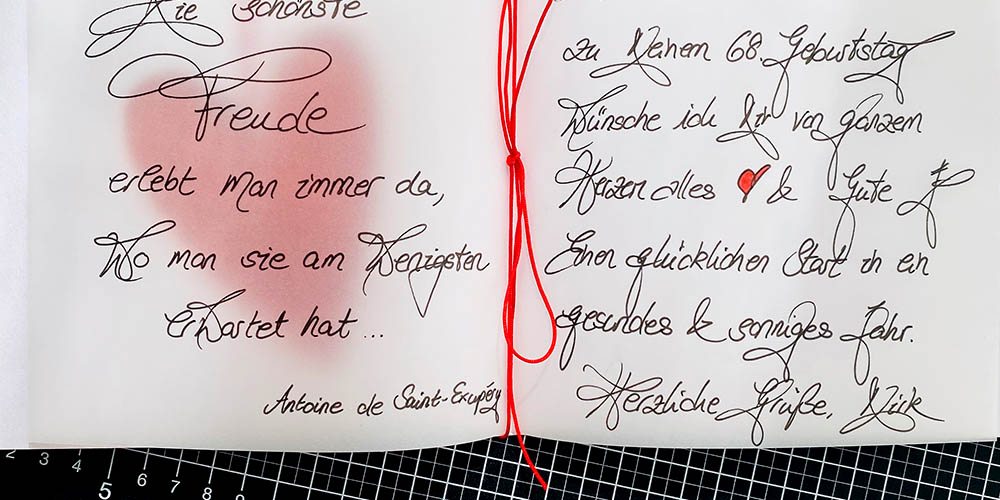 Die schönste
Freude
erlebt man immer da,
Wo man sie am Wenigsten
erwartet hat...
Antoine de Saint-Exupéry
zu Deinem 68. Geburtstag
Wünsche ich Dir von ganzem
Herzen alles ♥ & Gute &
Einen glücklichen Start in ein
gesundes & sonniges Jahr.
Herzliche Grüße, Dirk
2 3 4 5 6 7 8 9